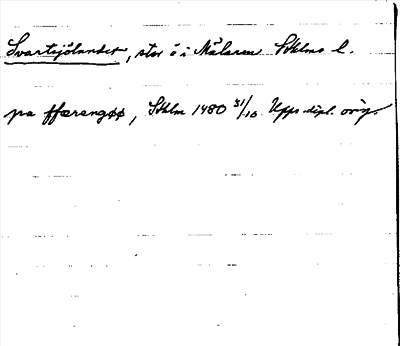 Svartsjölandet, stor ö i Mälaren Sthlms l.
pa ffærengøø, Sthlm 1480 31/10 Upps. dipl. orig.